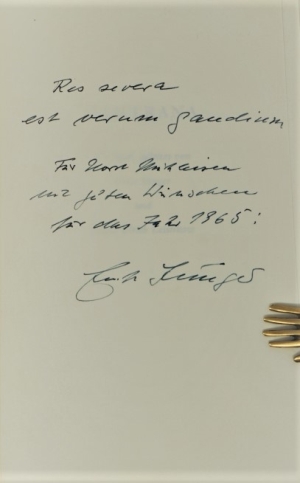 Res severa
est verum gaudium
Für Horst Mühleisen
mit guten Wünschen
für das Jahr 1965:
Ernst Jünger